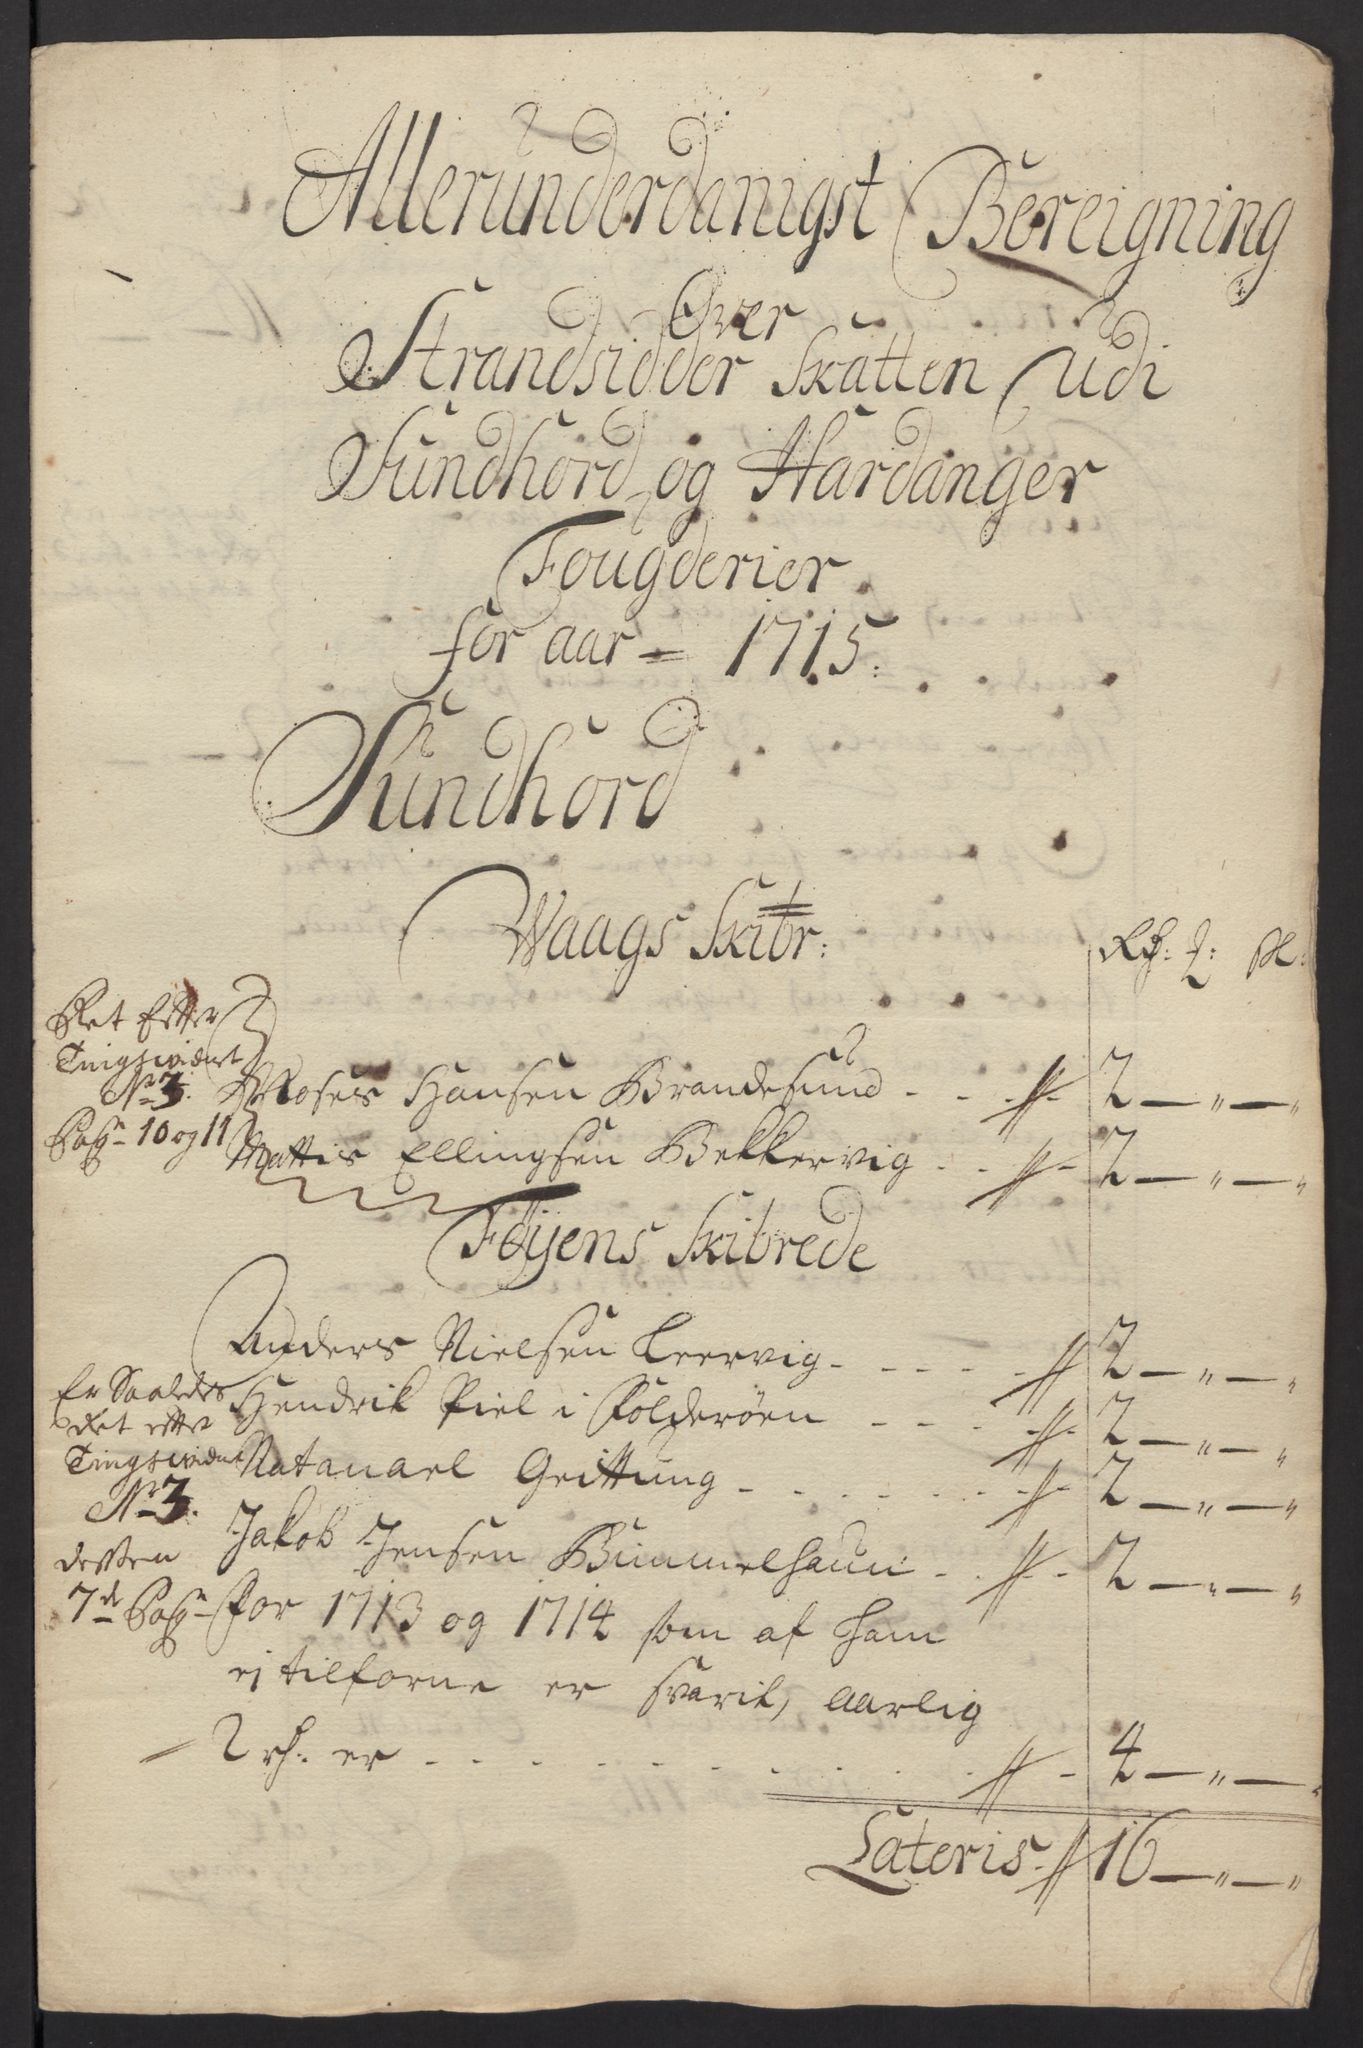 Allerunderdanigst Bereigning
Over
Strandsidder Skatten Udi
Sundhord og Hardanger
Fougderier
for aar = 1715:
Sundhord
Waags Skibr:
Rd: ℥: ß:
Ret Efter
Tingswidnet
No 3.
Pag 10 og 11
Moses Hansen Brandesund - - - 2 — " — "
Mattis Ellingsen Bekkervig - - - 2 — " — "
Føyens Skibrede
Anders Nielsen Leervig - - - - 2 — " — "
Er Saaledes
Ret efter
Tingswidne
No 3.
desten
7de Pag
Hendrik Piel i Folderöen - - - 2 — " — "
Natanael Grittung - - - - - 2 — " — "
Jakob Jensen Bummelhaun - - - 2 — " — "
For 1713 og 1714 som af ham
ej tilforne er svarit, aarlig
2 rd: er - - - - - - - - 4 — " — "
Lateris 16 — " — "